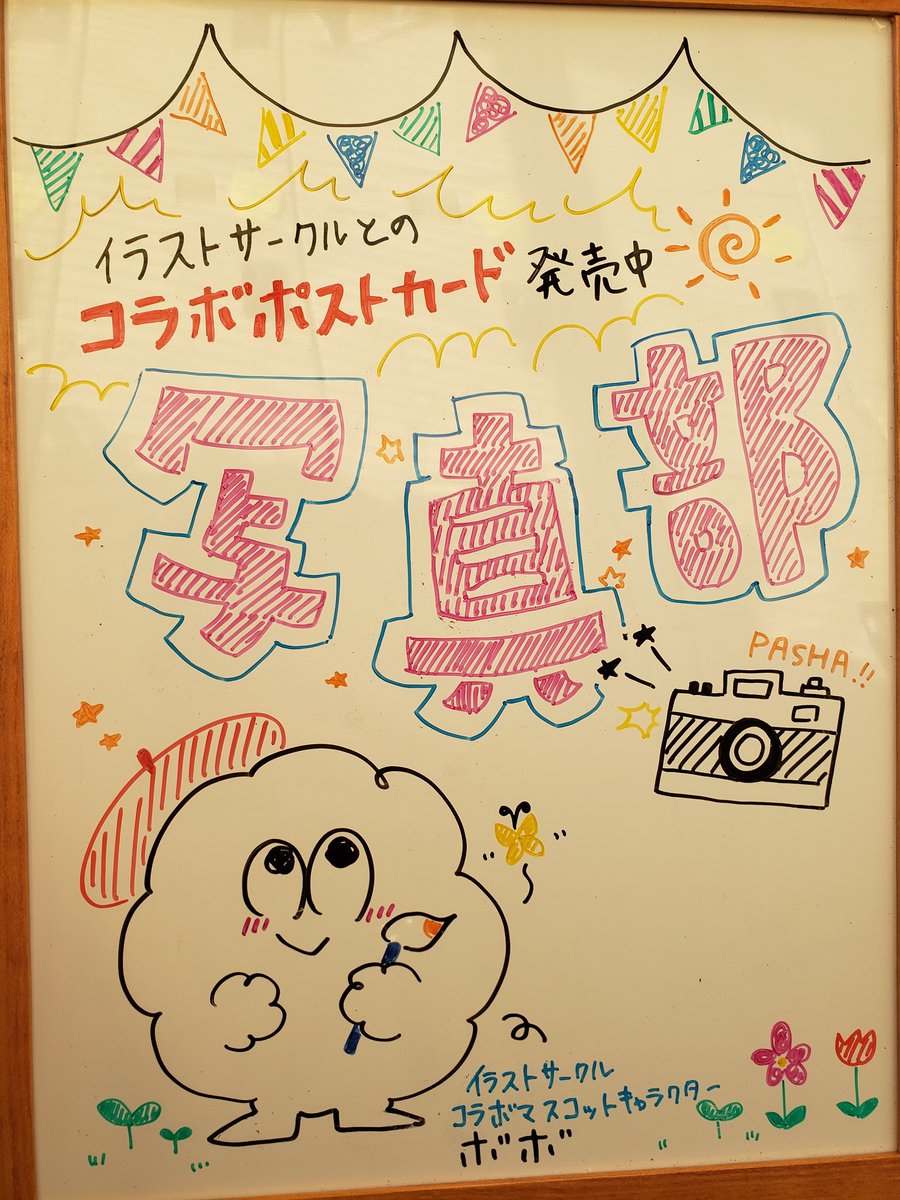 イラストサークルとの
コラボポストカード発売中
写真部
PASHA!!
イラストサークル
コラボマスコットキャラクター
ボボ